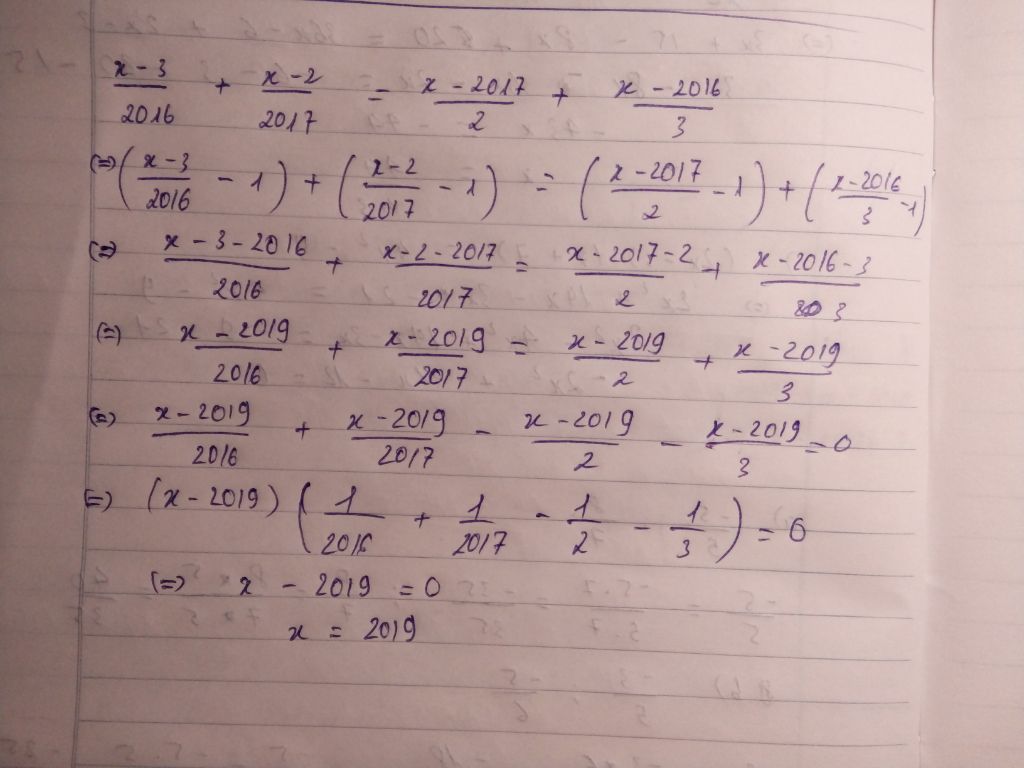 x-3/2016 + x-2/2017 = x-2017/2 + x-2016/3
(=) (x-3/2016 - 1) + (x-2/2017 - 1) = (x-2017/2 - 1) + (x-2016/3 - 1)
(=) x-3-2016/2016 + x-2-2017/2017 = x-2017-2/2 + x-2016-3/3
(=) x-2019/2016 + x-2019/2017 = x-2019/2 + x-2019/3
(=) x-2019/2016 + x-2019/2017 - x-2019/2 - x-2019/3 = 0
(=) (x-2019) (1/2016 + 1/2017 - 1/2 - 1/3) = 0
(=) x - 2019 = 0
x = 2019